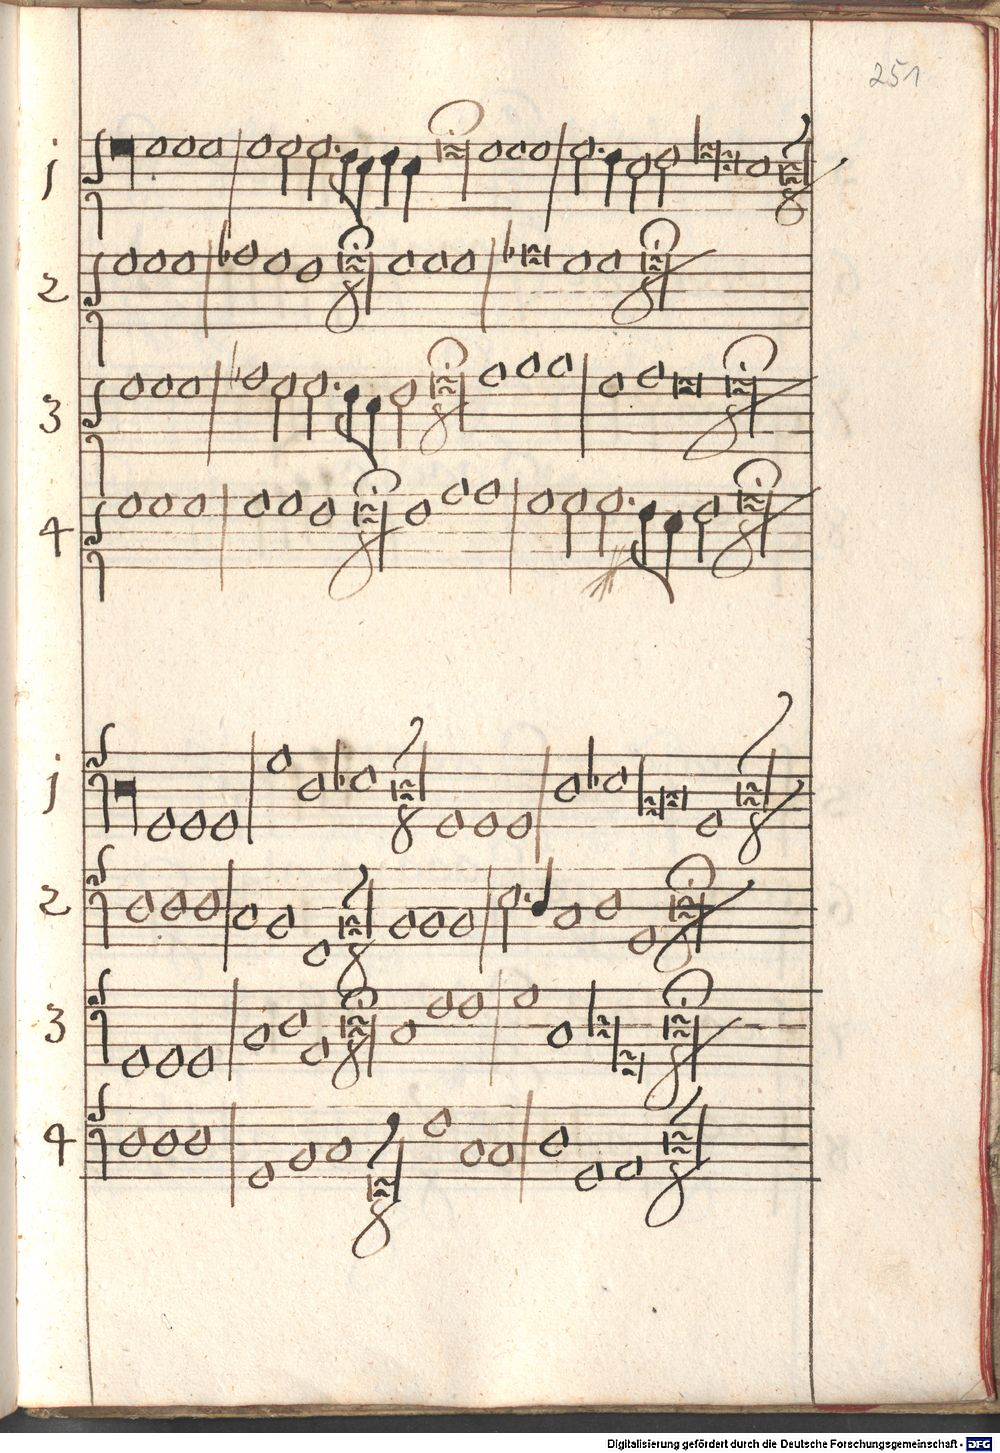 251
j
2
3
4
j
2
3
4
Digitalisierung gefördert durch die Deutsche Forschungsgemeinschaft - DFG